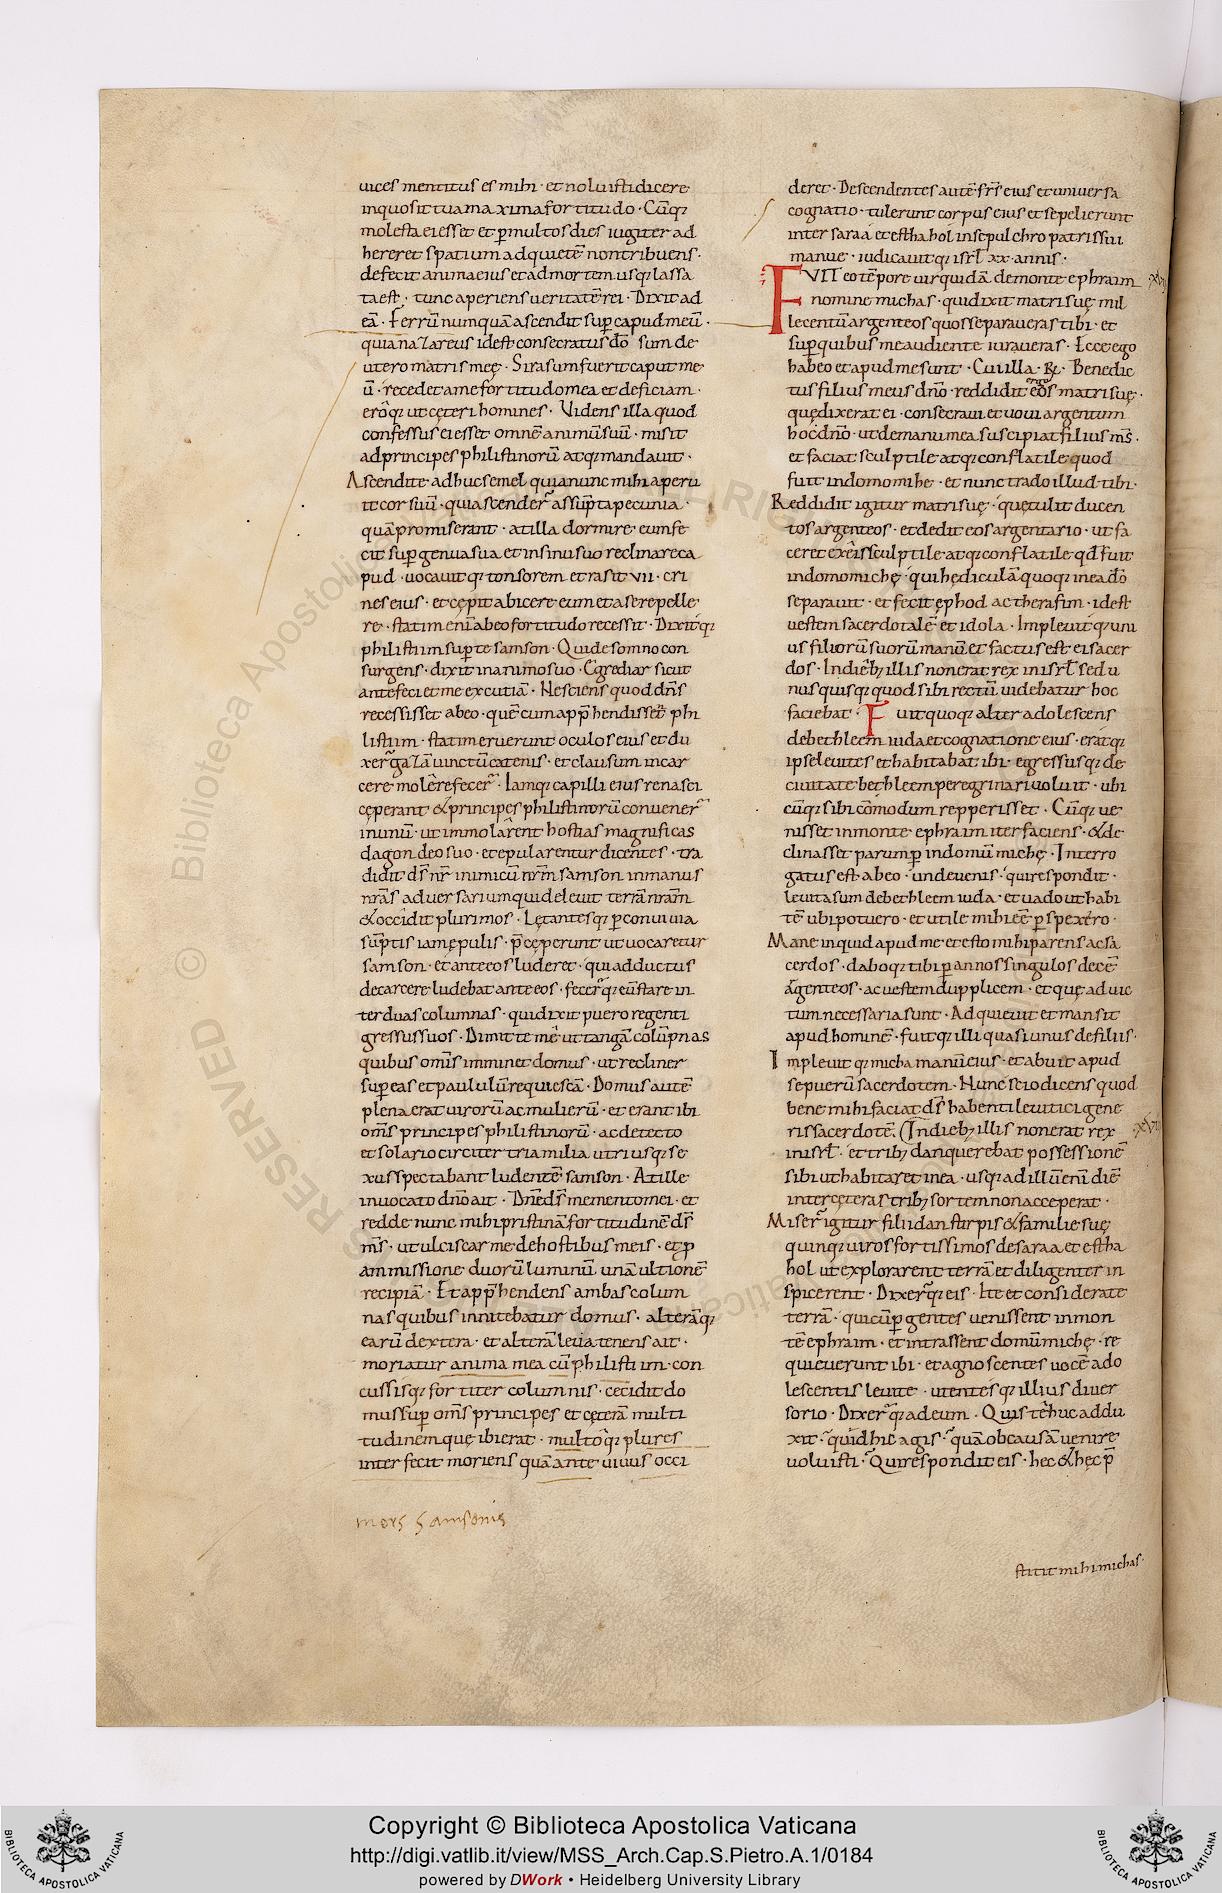 uices mentitus es mihi · et noluisti dicere
inquo sit tua maxima fortitudo · Cūq;
molesta ei esset et ꝑ multos dies iugiter ad
hereret spatium ad quietē non tribuens ·
defecit anima eius et ad mortem usq; lassa
ta est · tunc aperiens ueritatē rei · Dixit ad
eā · Ferrū numquā ascendit suꝑ capud meū ·
quia naẓareus id est consecratus dō sum de
utero matris meę · Si rasum fuerit caput me
ū · recedet a me fortitudo mea et deficiam ·
eroq; ut cęteri homines · Videns illa quod
confessus ei esset omnē animū suū · misit
ad principes philistinorū atq; mandauit ·
Ascendite adhuc semel quia nunc mihi aperu
it cor suū · qui ascender̄ assūpta pecunia ·
quā promiserant · at illa dormire eum fe
cit suꝑ genua sua et in sinu suo reclinare ca
pud · uocauitq; tonsorem et rasit VII · cri
nes eius · et cępit abicere eum et a se repelle
re · statim enī ab eo fortitudo recessit · Dixitq;
philistiim suꝑ te samson · Qui de somno con
surgens · dixit in animo suo · Egrediar sicut
ante feci et me excutiā · Nesciens quod dn̄s
recessisset ab eo · quē cum app̄hendissent phi
listiim · statim eruerunt oculos eius et du
xer̄ gaẓā uinctū catenis · et clausum in car
cere molere fecer̄ · Iamq; capilli eius renasci
ceperant & principes philistinorū conuener̄
in unū · ut immolarent hostias magnificas
dagon deo suo · et epularentur dicentes · tra
didit ds̄ nr̄ inimicū nrm̄ samson in manus
nrās aduersarium qui deleuit terrā nrām
& occidit plurimos · Lętantesq; ꝑ conuiuia
sūptis iam epulis · p̄ceperunt ut uocaretur
samson · et ante eos luderet · qui adductus
de carcere ludebat ante eos · fecer̄q; eū stare in
ter duas columnas · qui dixit puero regenti
gressus suos · Dimitte me ut tangā colūpnas
quibus omīs imminet domus · ut recliner
suꝑ eas et paululū requiescā · Domus autē
plena erat uirorū ac mulierū · et erant ibi
omīs principes philistinorū · ac de tecto
et solario circiter tria milia utriusq; se
xus spectabant ludentē samson · At ille
inuocato dnō ait · Dnē ds̄ memento mei · et
redde nunc mihi pristinā fortitudinē ds̄
ms̄ · ut ulciscar me de hostibus meis · et ꝓ
ammissione duorū luminū unā ultionē
recipiā · Et app̄hendens ambas colum
nas quibus innitebatur domus · alterāq;
earū dextera · et alterā leua tenens ait ·
moriatur anima mea cū philistiim · con
cussisq; fortiter columnis · cecidit do
mus suꝑ omīs principes et ceterā multi
tudinem quę ibi erat · multoq; plures
interfecit moriens quā ante uiuus occi
mors Samsonis
deret · Descendentes autē frs̄ eius et uniuersa
cognatio · tulerunt corpus eius et sepelierunt
inter saraa et esthahol in sepulchro patris sui
manue · iudicauitq; isrl̄ xx · annis ·
FVIT eo tēpore uir quidā de monte ephraim
nomine michas · qui dixit matri suę · mil
le centū argenteos quos separaueras tibi · et
suꝑ quibus me audiente iuraueras · Ecce ego
habeo et apud me sunt · Cui illa · R̄ · Benedic
tus filius meus dn̄o · reddidit ergo eos matri suę ·
quę dixerat ei · consecraui et uoui argentum
hoc dn̄o · ut de manu mea suscipiat filius ms̄ ·
et faciat sculptile atq; conflatile quod
fuit in domo mihe · et nunc trado illud tibi ·
Reddidit igitur matri suę · quę tulit ducen
tos argenteos · et dedit eos argentario · ut fa
ceret ex eis sculptile atq; conflatile qd̄ fuit
in domo michę · qui hędiculā quoq; in ea dō
separauit · et fecit ephod ac therafim · id est
uestem sacerdotalē et idola · Impleuitq; uni
us filiorū suorū manū et factus est ei sacer
dos · In dieb; illis non erat rex in isrl̄ sed u
nusquisq; quod sibi rectū uidebatur hoc
faciebat · Fuit quoq; alter adolescens
de bethleem iuda et cognatione eius · eratq;
ipse leuites et habitabat ibi · egressusq; de
ciuitate bethleem peregrinari uoluit · ubi
cūq; sibi cōmodum repperisset · Cūq; ue
nisset in monte ephraim iter faciens · & de
clinasset parumꝑ in domū michę · Interro
gatus est ab eo · unde uenis · qui respondit ·
leuita sum de bethleem iuda · et uado ut habi
tē ubi potuero · et utile mihi eē ꝑspexero ·
Mane inquid apud me et esto mihi parens ac sa
cerdos · daboq; tibi ꝑ annos singulos decē
argenteos · ac uestem dupplicem · et quę ad uic
tum necessaria sunt · Adquieuit et mansit
apud hominē · fuitq; illi quasi unus de filiis ·
Impleuitq; micha manū eius · et abuit apud
se puerū sacerdotem · Nunc scio dicens quod
bene mihi faciat ds̄ habenti leuitici gene
ris sacerdotē. In dieb; illis non erat rex
in isrl̄ · et trib; dan querebat possessionē
sibi ut habitaret in ea · usq; ad illū enī diē
inter cęteras trib; sortem non acceperat ·
Miser̄ igitur filii dan stirpis & familię suę
quinq; uiros fortissimos de saraa et estha
hol ut explorarent terrā et diligenter in
spicerent · Dixer̄q; eis · Ite et considerate
terrā · quicūꝑ gentes uenissent in mon
tē ephraim · et intrassent domū michę · re
quieuerunt ibi · et agnoscentes uocē ado
lescentis leuite · utentesq; illius diuer
sorio · Dixer̄q; ad eum · Quis te huc addu
xit · quid hic agis · quā ob causā uenire
uoluisti · Qui respondit eis · hec & hęc p̄
stitit mihi michas ·
Copyright © Biblioteca Apostolica Vaticana
http://digi.vatlib.it/view/MSS_Arch.Cap.S.Pietro.A.1/0184
powered by DWork • Heidelberg University Library